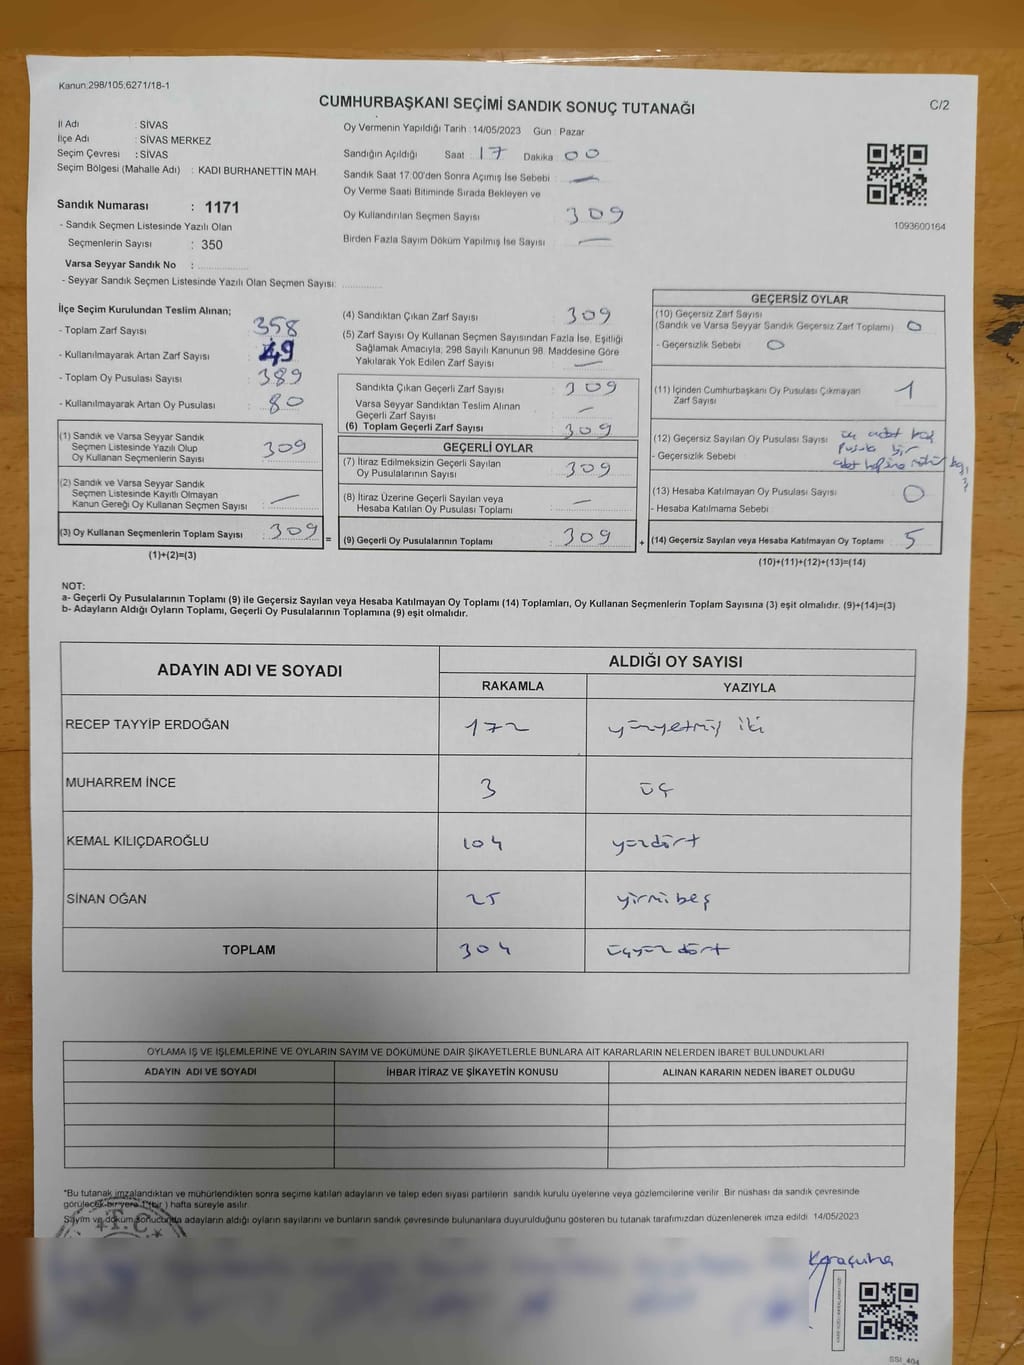 Kanun:298/105,6271/18-1
CUMHURBAŞKANI SEÇİMİ SANDIK SONUÇ TUTANAĞI
C/2
İl Adı : SİVAS
İlçe Adı : SİVAS MERKEZ
Seçim Çevresi : SİVAS
Seçim Bölgesi (Mahalle Adı) : KADI BURHANETTİN MAH.
Sandık Numarası : 1171
- Sandık Seçmen Listesinde Yazılı Olan
Seçmenlerin Sayısı : 350
Varsa Seyyar Sandık No :
- Seyyar Sandık Seçmen Listesinde Yazılı Olan Seçmen Sayısı:
Oy Vermenin Yapıldığı Tarih : 14/05/2023 Gün : Pazar
Sandığın Açıldığı Saat : 17 Dakika : 00
Sandık Saat 17:00'den Sonra Açımış İse Sebebi : —
Oy Verme Saati Bitiminde Sırada Bekleyen ve
Oy Kullandırılan Seçmen Sayısı : 309
Birden Fazla Sayım Döküm Yapılmış İse Sayısı : —
1093600164
İlçe Seçim Kurulundan Teslim Alınan;
- Toplam Zarf Sayısı : 358
- Kullanılmayarak Artan Zarf Sayısı : 49
- Toplam Oy Pusulası Sayısı : 389
- Kullanılmayarak Artan Oy Pusulası : 80
(1) Sandık ve Varsa Seyyar Sandık
Seçmen Listesinde Yazılı Olup
Oy Kullanan Seçmenlerin Sayısı : 309
(2) Sandık ve Varsa Seyyar Sandık
Seçmen Listesinde Kayıtlı Olmayan
Kanun Gereği Oy Kullanan Seçmen Sayısı : —
(3) Oy Kullanan Seçmenlerin Toplam Sayısı : 309
(1)+(2)=(3)
=
(4) Sandıktan Çıkan Zarf Sayısı : 309
(5) Zarf Sayısı Oy Kullanan Seçmen Sayısından Fazla İse, Eşitliği
Sağlamak Amacıyla, 298 Sayılı Kanunun 98. Maddesine Göre
Yakılarak Yok Edilen Zarf Sayısı : —
Sandıkta Çıkan Geçerli Zarf Sayısı : 309
Varsa Seyyar Sandıktan Teslim Alınan
Geçerli Zarf Sayısı : —
(6) Toplam Geçerli Zarf Sayısı : 309
GEÇERLİ OYLAR
(7) İtiraz Edilmeksizin Geçerli Sayılan
Oy Pusulalarının Sayısı : 309
(8) İtiraz Üzerine Geçerli Sayılan veya
Hesaba Katılan Oy Pusulası Toplamı : —
(9) Geçerli Oy Pusulalarının Toplamı : 309
+
GEÇERSİZ OYLAR
(10) Geçersiz Zarf Sayısı
(Sandık ve Varsa Seyyar Sandık Geçersiz Zarf Toplamı) : 0
- Geçersizlik Sebebi : 0
(11) İçinden Cumhurbaşkanı Oy Pusulası Çıkmayan
Zarf Sayısı : 1
(12) Geçersiz Sayılan Oy Pusulası Sayısı : üç adet boş
pusula bir
- Geçersizlik Sebebi : adet
(13) Hesaba Katılmayan Oy Pusulası Sayısı : 0
- Hesaba Katılmama Sebebi
(14) Geçersiz Sayılan veya Hesaba Katılmayan Oy Toplamı : 5
(10)+(11)+(12)+(13)=(14)
NOT:
a- Geçerli Oy Pusulalarının Toplamı (9) ile Geçersiz Sayılan veya Hesaba Katılmayan Oy Toplamı (14) Toplamları, Oy Kullanan Seçmenlerin Toplam Sayısına (3) eşit olmalıdır. (9)+(14)=(3)
b- Adayların Aldığı Oyların Toplamı, Geçerli Oy Pusulalarının Toplamına (9) eşit olmalıdır.
ADAYIN ADI VE SOYADI
ALDIĞI OY SAYISI
RAKAMLA YAZIYLA
RECEP TAYYİP ERDOĞAN 172 yüzyetmiş iki
MUHARREM İNCE 3 üç
KEMAL KILIÇDAROĞLU 104 yüzdört
SİNAN OĞAN 25 yirmibeş
TOPLAM 304 üçyüzdört
OYLAMA İŞ VE İŞLEMLERİNE VE OYLARIN SAYIM VE DÖKÜMÜNE DAİR ŞİKAYETLERLE BUNLARA AİT KARARLARIN NELERDEN İBARET BULUNDUKLARI
ADAYIN ADI VE SOYADI İHBAR İTİRAZ VE ŞİKAYETİN KONUSU ALINAN KARARIN NEDEN İBARET OLDUĞU
*Bu tutanak imzalandıktan ve mühürlendikten sonra seçime katılan adayların ve talep eden siyasi partilerin sandık kurulu üyelerine veya gözlemcilerine verilir. Bir nüshası da sandık çevresinde
görülecek bir yere 1 (bir) hafta süreyle asılır.
Sayım ve döküm sonucunda adayların aldığı oyların sayılarını ve bunların sandık çevresinde bulunanlara duyurulduğunu gösteren bu tutanak tarafımızdan düzenlenerek imza edildi. 14/05/2023
T.C.
SSI_404